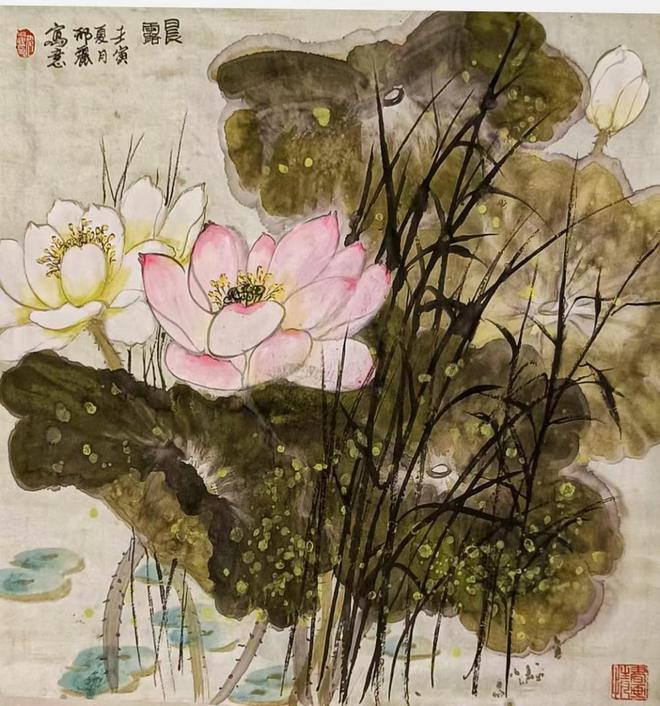 晨露
壬寅
夏月
寫意